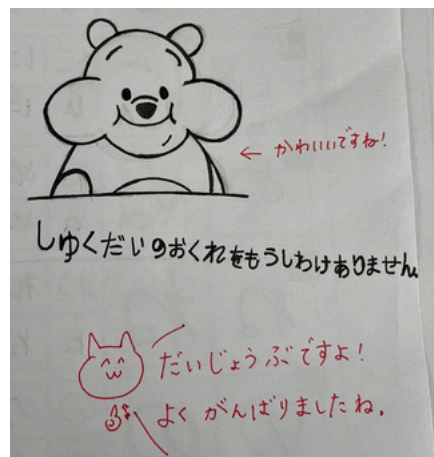 ← かわいいですね!
しゅくだいのおくれをもうしわけありません
だいじょうぶですよ!
よくがんばりましたね。